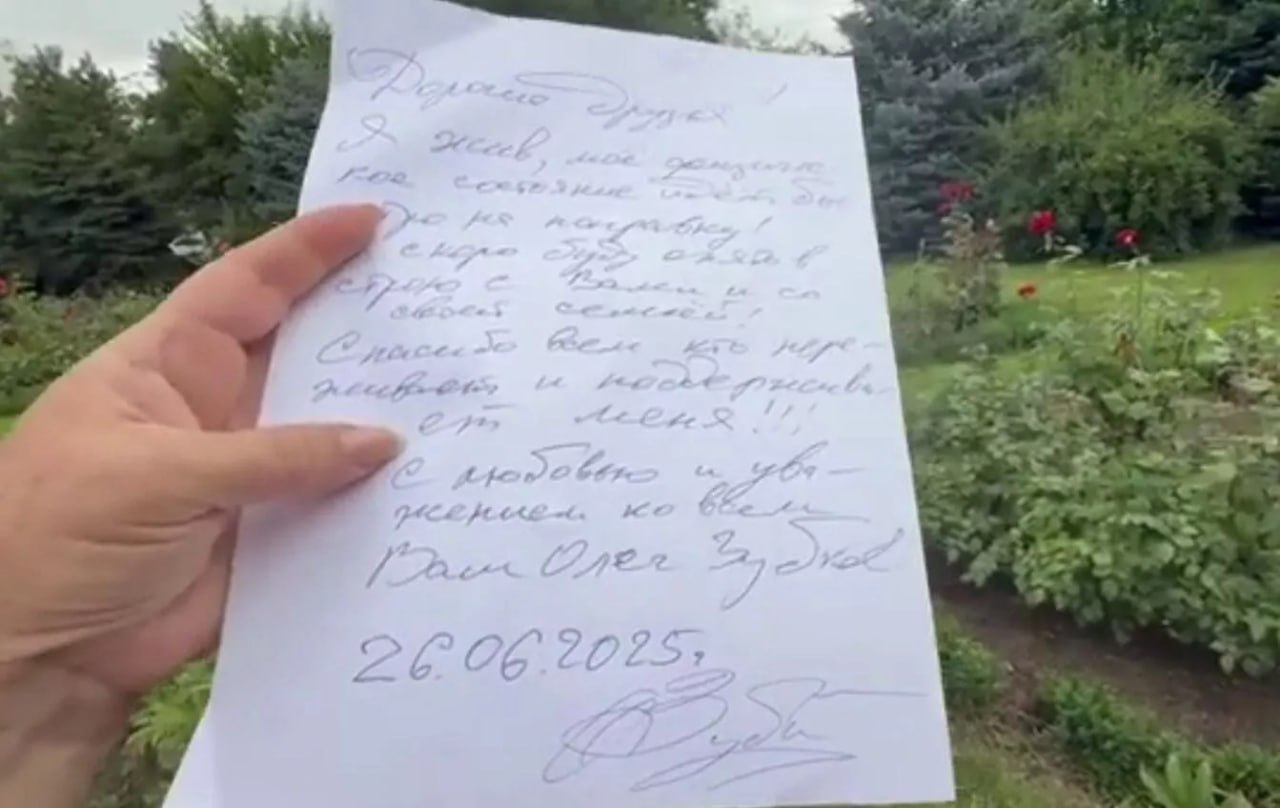 Дорогие друзья!
Я жив, моё физичес
кое состояние идёт быс
тро на поправку!
скоро буду опять в
строю с Вами и со
своей семьёй!
Спасибо всем кто пере-
живает и поддержива-
ет меня!!!
С любовью и ува-
жением ко всем
Ваш Олег Зубков
26.06.2025г.